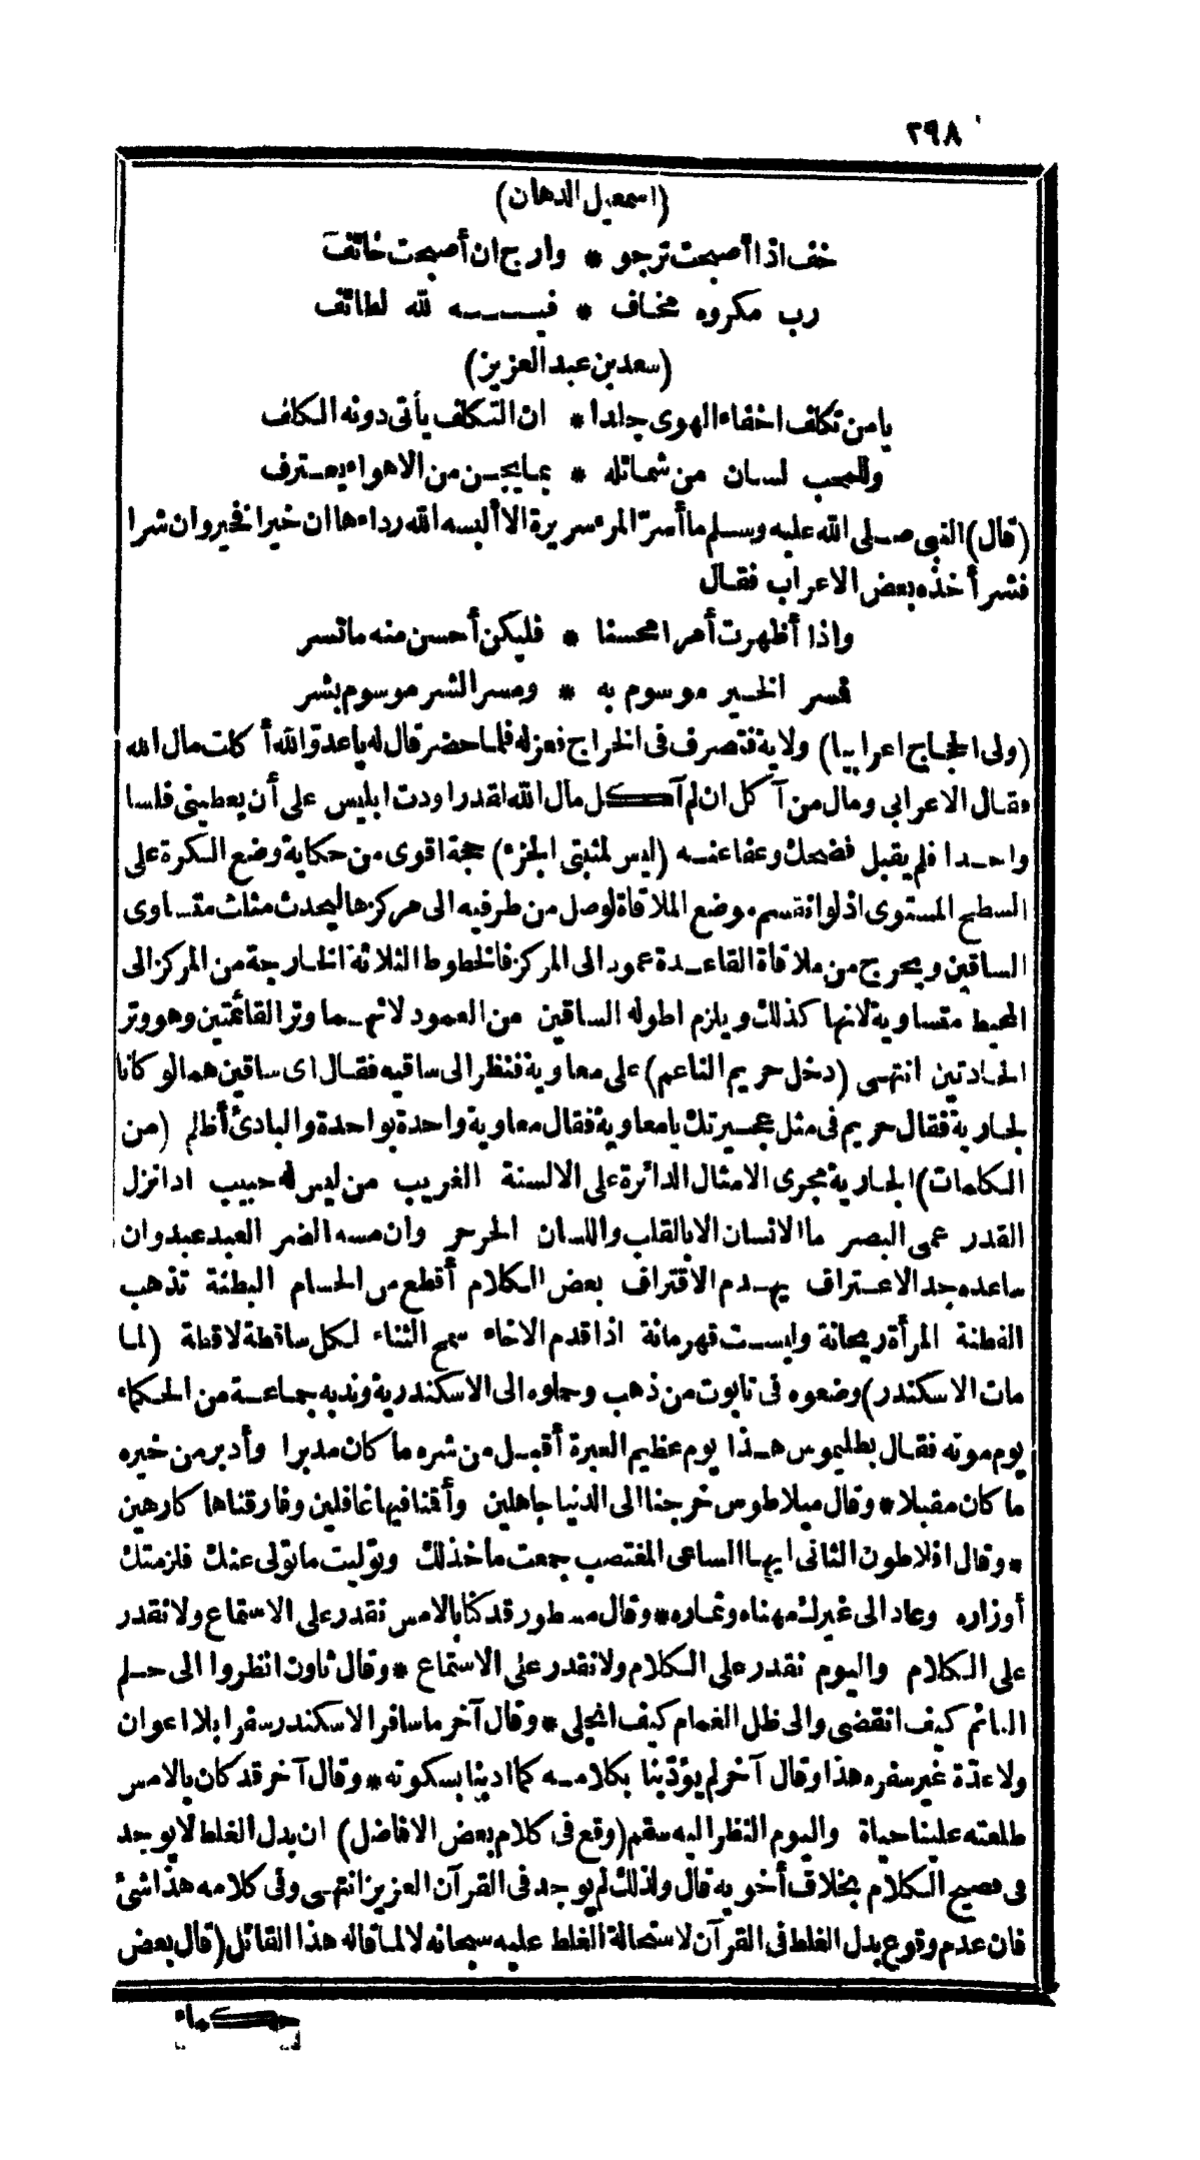 ٢٩٨
(اسمعيل الدهان)
خف اذا أصبحت ترجو * وارج ان أصبحت خائف
رب مكروه مخاف * فيه لله لطائف
(سعد بن عبد العزيز)
يا من تكلف اخفاء الهوى جلدا * ان التكلف يأتى دونه الكلف
وللمحب لسان من شمائله * بما يجن من الاهواء يعترف
(قال) النبى صلى الله عليه وسلم ما أسرّ المرء سريرة الا ألبسه الله رداءها ان خيرا فخير وان شرا
فشر أخذه بعض الاعراب فقال
واذا أظهرت أمرا محسنا * فليكن أحسن منه ما تسر
فمسر الخير موسوم به * ومسر الشر موسوم بشر
(ولى الحجاج اعرابيا) ولاية فتصرف فى الخراج فعزله فلما حضر قال له يا عدوّ الله أكلت مال الله
فقال الاعرابى ومال من آكل ان لم آكل مال الله لقد راودت ابليس على أن يعطينى فلسا
واحدا فلم يقبل فضحك وعفا عنه (ليس لمثبتى الجزء) حجة اقوى من حكاية وضع الكرة على
السطح المستوى اذ لو انقسم موضع الملاقاة لوصل من طرفيه الى مركزها ليحدث مثلث متساوى
الساقين ويخرج من ملاقاة القاعدة عمود الى المركز فالخطوط الثلاثة الخارجة من المركز الى
المحيط متساوية لانها كذلك ويلزم اطوله الساقين من العمود لانهما وتر القائمتين وهو وتر
الحادتين انتهى (دخل حريم الناعم) على معاوية فنظر الى ساقيه فقال اى ساقين هما لو كانا
لجارية فقال حريم فى مثل عجيزتك يا معاوية فقال معاوية واحدة بواحدة والبادئ أظلم (من
الكلمات) الجارية مجرى الامثال الدائرة على الالسنة الغريب من ليس له حبيب اذا نزل
القدر عمى البصر ما الانسان الا بالقلب واللسان الحر حر وان مسه الضر العبد عبد وان
ساعده جد الاعتراف يهدم الاقتراف بعض الكلام أقطع من الحسام البطنة تذهب
الفطنة المرأة ريحانة وليست قهرمانة اذا قدم الاخاء سمج الثناء لكل ساقطة لاقطة (لما
مات الاسكندر) وضعوه فى تابوت من ذهب وحملوه الى الاسكندرية وندبه جماعة من الحكماء
يوم موته فقال بطليموس هذا يوم عظيم العبرة أقبل من شره ما كان مدبرا وأدبر من خيره
ما كان مقبلا * وقال ميلاطوس خرجنا الى الدنيا جاهلين وأقنا فيها غافلين وفارقناها كارهين
* وقال افلاطون الثانى ايها الساعى المغتصب جمعت ما خذلك وتوليت ما تولى عنك فلزمتك
أوزاره وعاد الى غيرك مهناه وثماره * وقال مسطور قد كنا بالامس نقدر على الاستماع ولا نقدر
على الكلام واليوم نقدر على الكلام ولا نقدر على الاستماع * وقال ثاون انظروا الى حلم
النائم كيف انقضى والى ظل الغمام كيف انجلى * وقال آخر ما سافر الاسكندر سفرا بلا اعوان
ولا عدّة غير سفره هذا وقال آخر لم يؤدّبنا بكلامه كما ادبنا بسكوته * وقال آخر قد كان بالامس
طلعته علينا حياة واليوم النظر اليه سقم (وقع فى كلام بعض الافاضل) ان بدل الغلط لا يوجد
فى فصيح الكلام بخلاف أخويه قال ولذلك لم يوجد فى القرآن العزيز انتهى وفى كلامه هذا شئ
فان عدم وقوع بدل الغلط فى القرآن لاستحالة الغلط عليه سبحانه لا لما قاله هذا القائل (قال بعض
حكماء